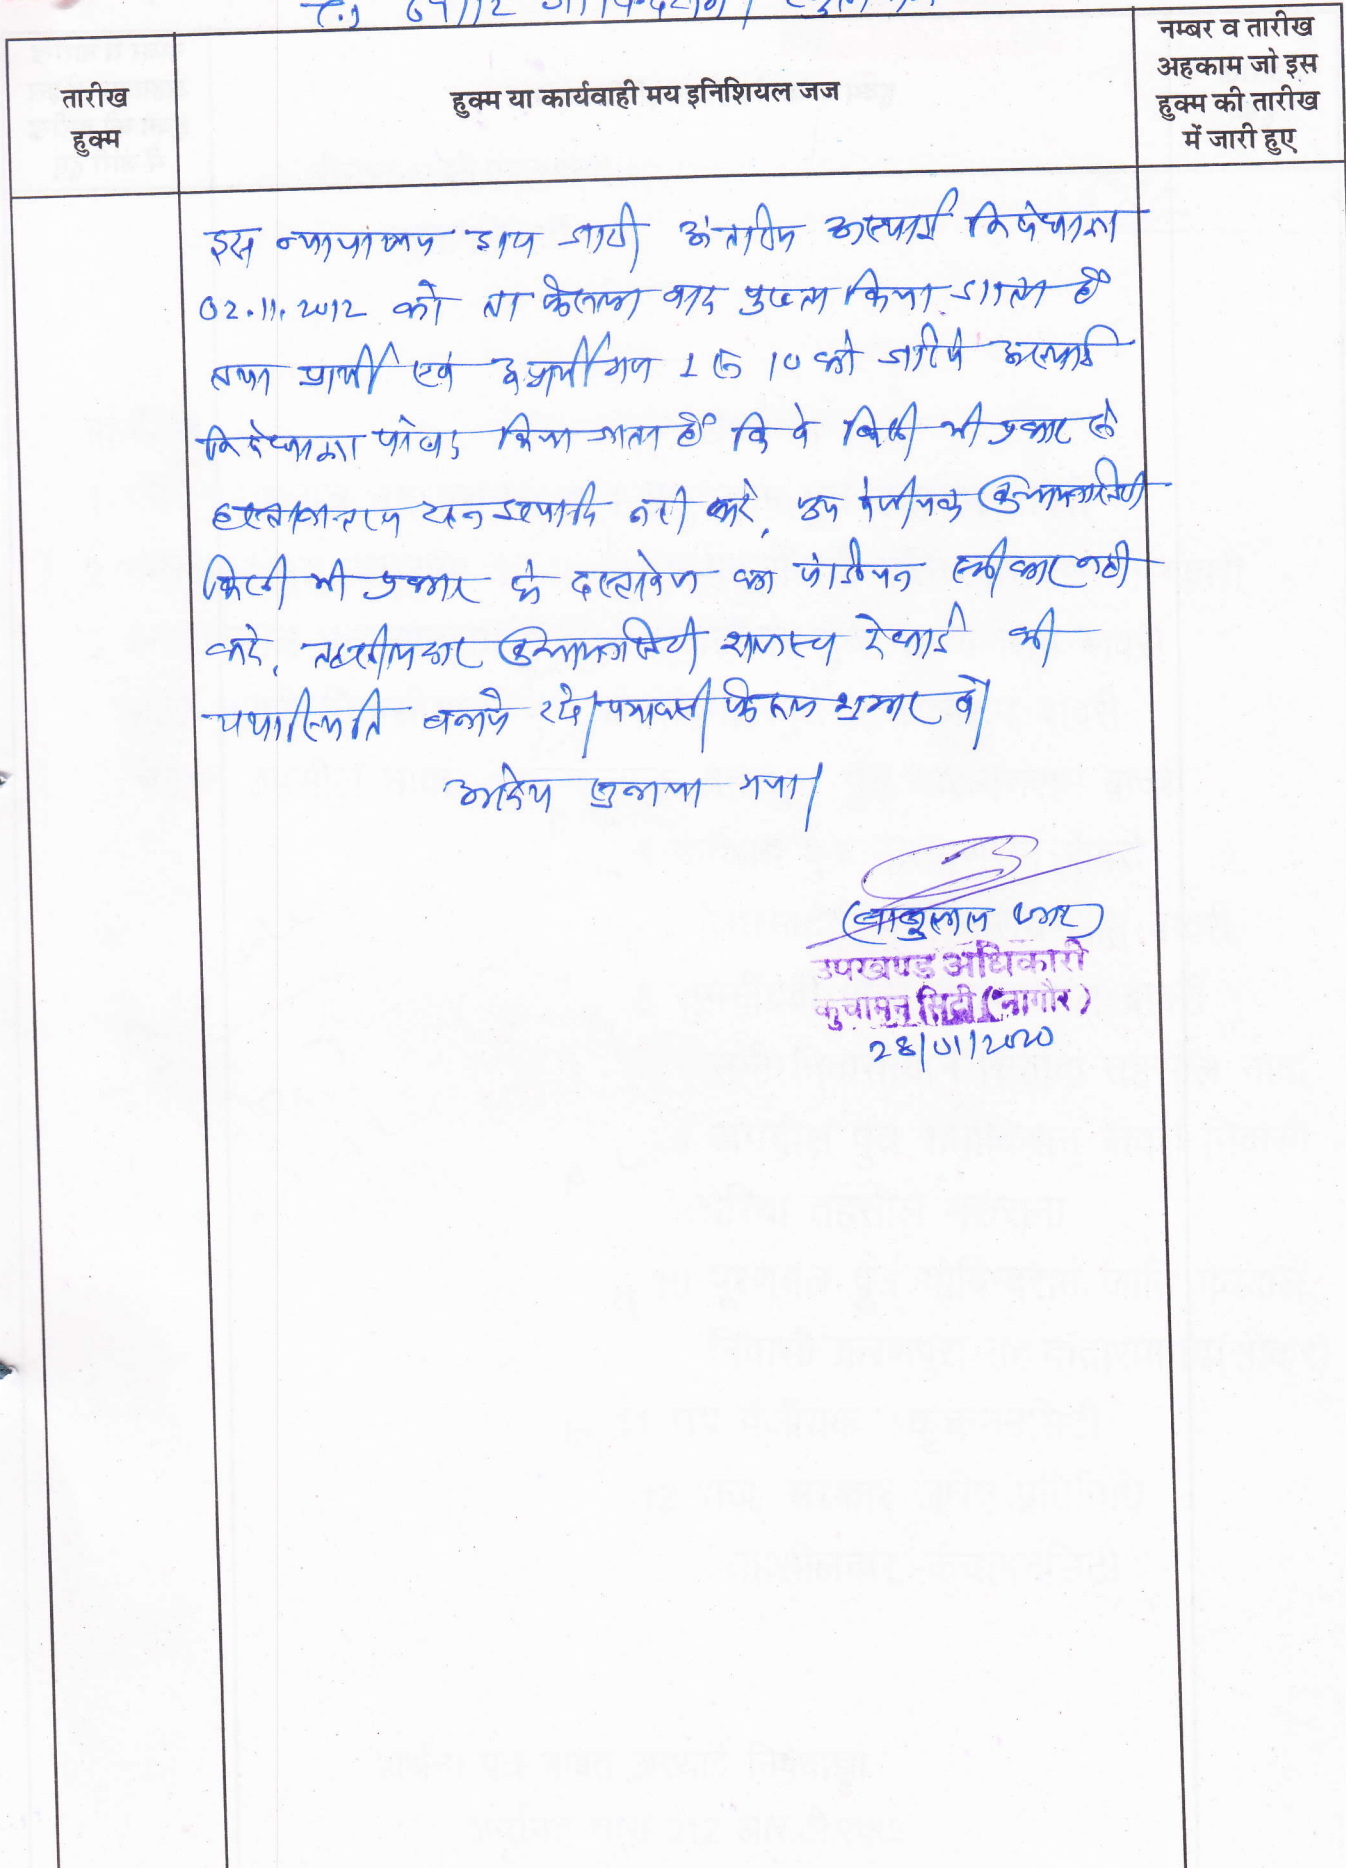 तारीख
हुक्म
हुक्म या कार्यवाही मय इनिशियल जज
नम्बर व तारीख
अहकाम जो इस
हुक्म की तारीख
में जारी हुए
इस न्यायालय द्वारा जारी अंतरिम अस्थाई निषेधाज्ञा
02.11.2012 को ता फैसला वाद पुख्ता किया जाता है
तथा प्रार्थी एवं अप्रार्थीगण 1 से 10 को जरिये अस्थाई
निषेधाज्ञा पाबंद किया जाता है कि वे किसी भी प्रकार से
हस्तान्तरण रहन इत्यादि नहीं करे, उप पंजीयक कुचामनसिटी
किसी भी प्रकार के दस्तावेज का पंजीयन स्वीकार नहीं
करे, तहसीलदार कुचामनसिटी राजस्व रेकार्ड की
यथास्थिति बनाये रखे। पत्रावली फैसल शुमार हो।
आदेश सुनाया गया।
(बाबुलाल जाट)
उपखण्ड अधिकारी
कुचामन सिटी (नागौर)
28/01/2020